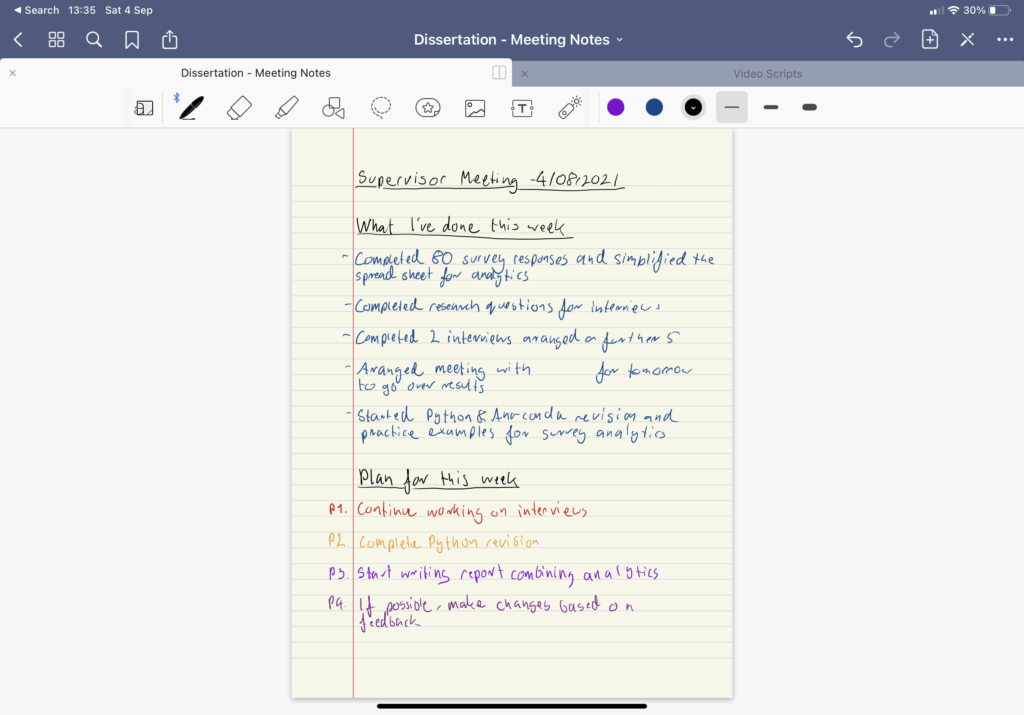 Search 13:35 Sat 4 Sep 30%
Dissertation - Meeting Notes
Dissertation - Meeting Notes
Video Scripts
Supervisor Meeting -4/08/2021
What I've done this week
- Completed 80 survey responses and simplified the
spread sheet for analytics
- Completed research questions for interviews
- Completed 2 interviews arranged a further 5
- Aranged meeting with for tomorrow
to go over results
- Started Python & Anaconda revision and
practice examples for survey analytics
Plan for this week
P1. Continue working on interviews
P2. Complete Python revision
P3. Start writing report combining analytics
P4. If possible, make changes based on
feedback